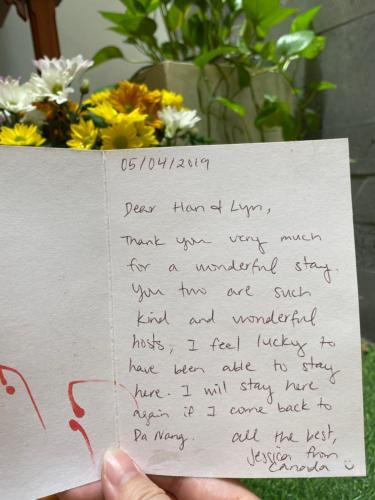 05/04/2019
Dear Han & Lyn,
Thank you very much
for a wonderful stay.
You two are such
kind and wonderful
hosts, I feel lucky to
have been able to stay
here. I will stay here
again if I come back to
Da Nang. all the best,
Jessica from
Canada